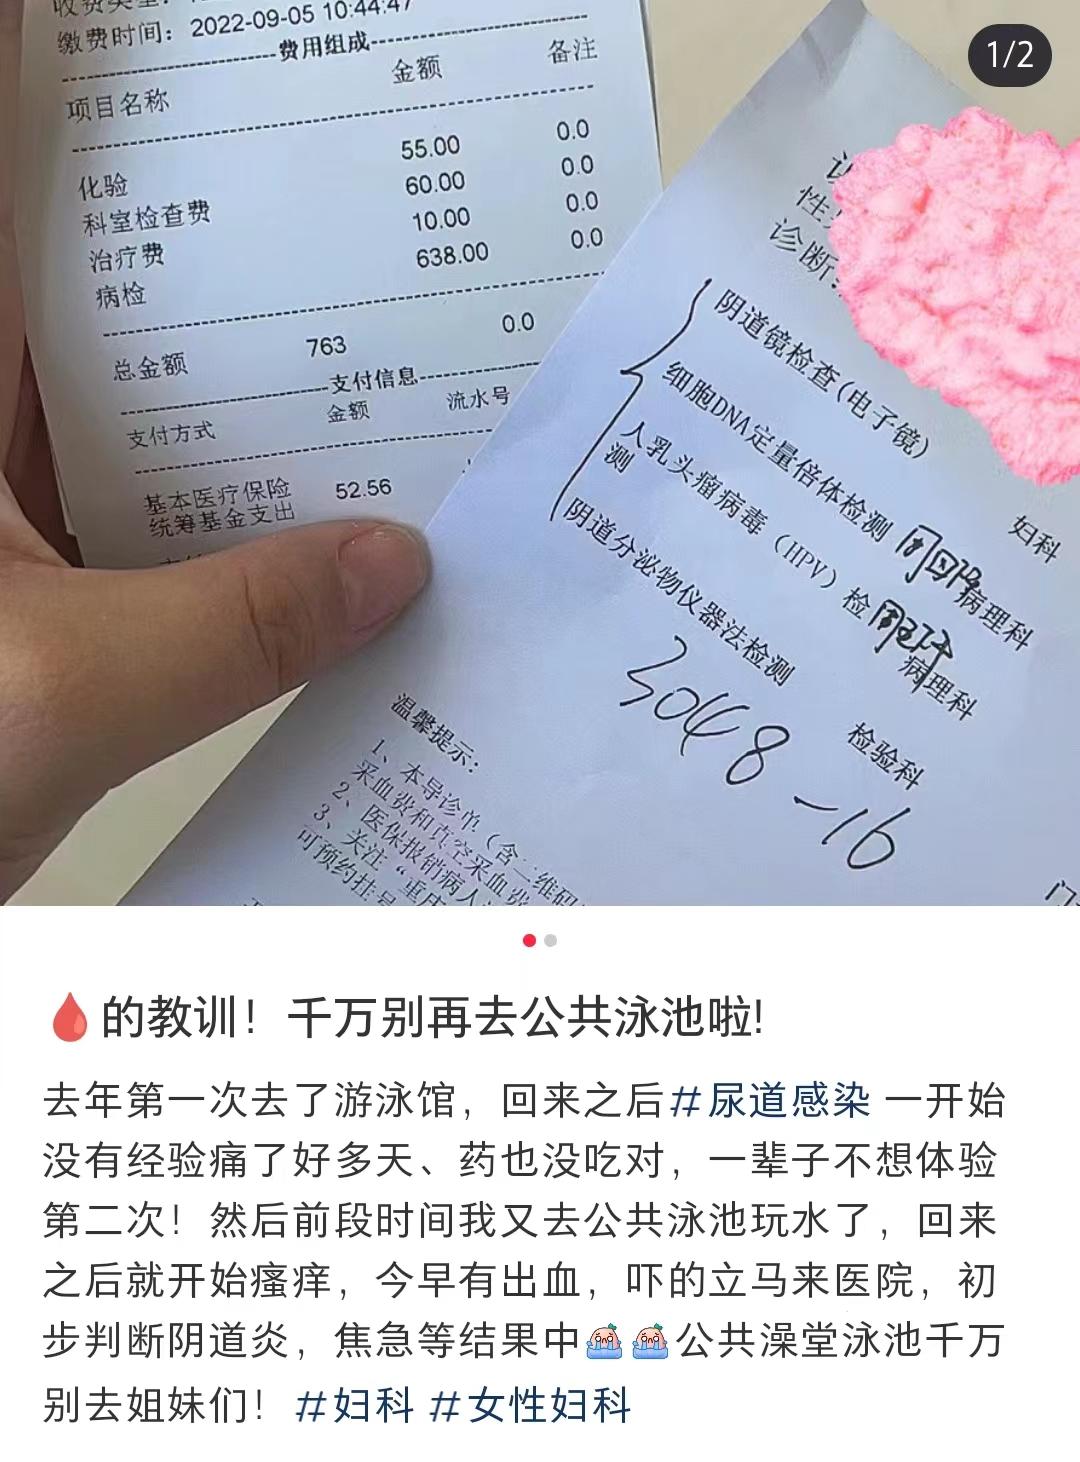 1/2
缴费时间：2022-09-05 10:44:47
费用组成
项目名称 金额 备注
化验 55.00 0.0
科室检查费 60.00 0.0
治疗费 10.00 0.0
病检 638.00 0.0
总金额 763 0.0
支付信息
支付方式 金额 流水号
基本医疗保险 52.56
统筹基金支出
诊断
阴道镜检查(电子镜) 妇科
细胞DNA定量倍体检测 病理科
人乳头瘤病毒（HPV）检 病理科
测
阴道分泌物仪器法检测 检验科
-16
温馨提示：
1、本导诊单（含二维码
采血费和真空采血费
2、医保报销病人
3、关注“重庆
可预约挂号
🩸的教训！千万别再去公共泳池啦!
去年第一次去了游泳馆，回来之后#尿道感染 一开始
没有经验痛了好多天、药也没吃对，一辈子不想体验
第二次！然后前段时间我又去公共泳池玩水了，回来
之后就开始瘙痒，今早有出血，吓的立马来医院，初
步判断阴道炎，焦急等结果中 公共澡堂泳池千万
别去姐妹们！#妇科 #女性妇科